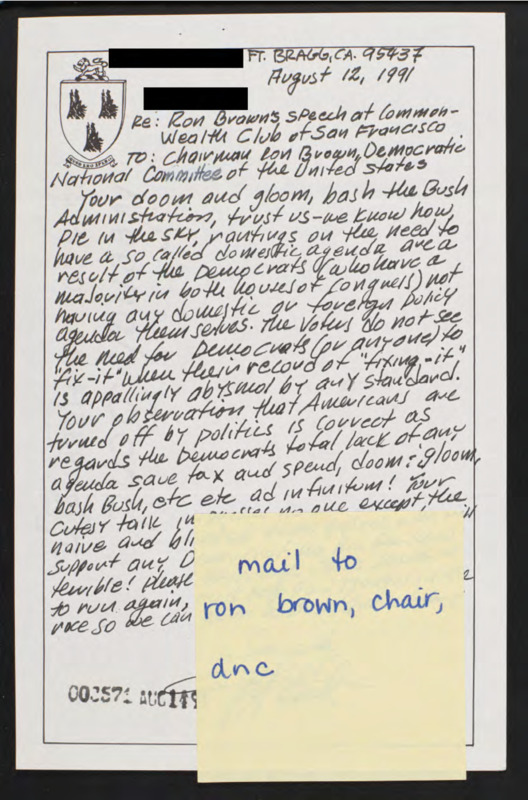 FT. BRAGG, CA. 95437
August 12, 1991
Re: Ron Brown's speech at Common-
Wealth Club of San Francisco
TO: Chairman Ron Brown, Democratic
National Committee of the United States
Your doom and gloom, bash the Bush
Administration, trust us-we know how,
pie in the sky, rantings on the need to
have a so called domestic agenda are a
result of the Democrats (who have a
majority in both houses of Congress) not
having any domestic or foreign policy
agenda themselves. The Voters do not see
the need for Democrats (or anyone) to
"fix-it" when their record of "fixing-it"
is appallingly abysmal by any standard.
Your observation that Americans are
turned off by politics is correct as
regards the Democrats total lack of any
agenda save tax and spend, doom & gloom,
bash Bush, etc etc ad infinitum! Your
cutesy talk no one except, the
naive and
support any
terrible! Please
to run again,
race so we can
003571 AUG 149
mail to
ron brown, chair,
dnc